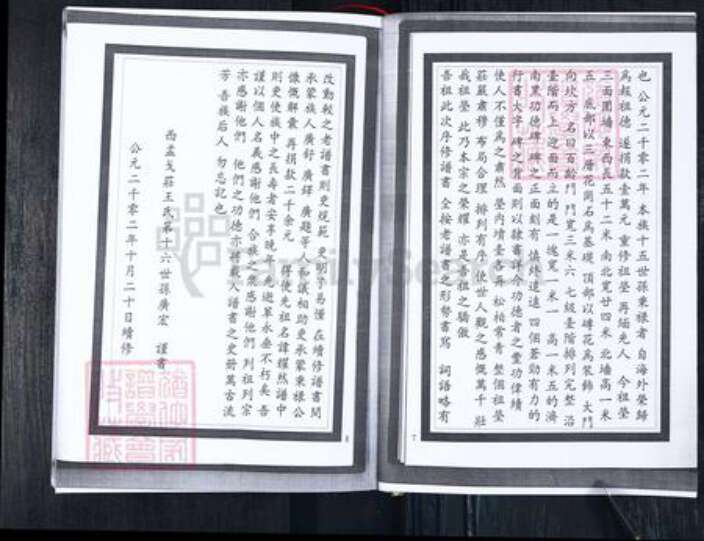 也 公元二千零二年 本族十五世孫秉祿者 自海外榮歸
為報祖德 遂捐款壹萬元 重修祖塋 再緬先人 今祖塋
三面圍墻 東西長五十二米 南北寬廿四米 北墻高一米
五 底部以三層花岡石為基礎 頂部以磚花為裝飾 大門
向坎方 名曰百齡門 門寬三米六 七級臺階排列完整 沿
臺階而上 迎面而立的是一塊寬一米一 高一米五的濟
南黑功德碑 碑之正面刻有 慎終追遠 四個蒼勁有力的
行書大字 碑之背面則以隸書詳介功德者之豐功偉績
使人不僅為之肅然 塋內墳臺再 松柏常青 整個祖塋
莊嚴肅穆 布局合理 排列有序 使世人觀之感慨萬千 壯
我祖塋 此乃本宗之榮耀 亦是吾祖之驕傲
吾祖此次序修譜書 全按老譜書之形勢書寫 詞語略有
改動較之老譜書則更規範 更明了易懂 在續修譜書間
承蒙族人廣舒 廣鐸 廣題等人和議相助更承蒙秉祿公
慷慨解囊 再捐款二千余元 得使先祖名諱耀然譜中
則更使族中之長壽者安享晚年 先逝軍永垂不朽矣 吾
謹以個人名義感謝他們 合族之眾感謝他們 列祖列宗
亦感謝他們 他們之功德亦將載入譜書之史册 萬古流
芳 吾族后人 勿忘記也
西孟戈莊王氏第十六世孫廣宏 謹書
公元二千零二年十月二十日續修
7
8
FamilySearch